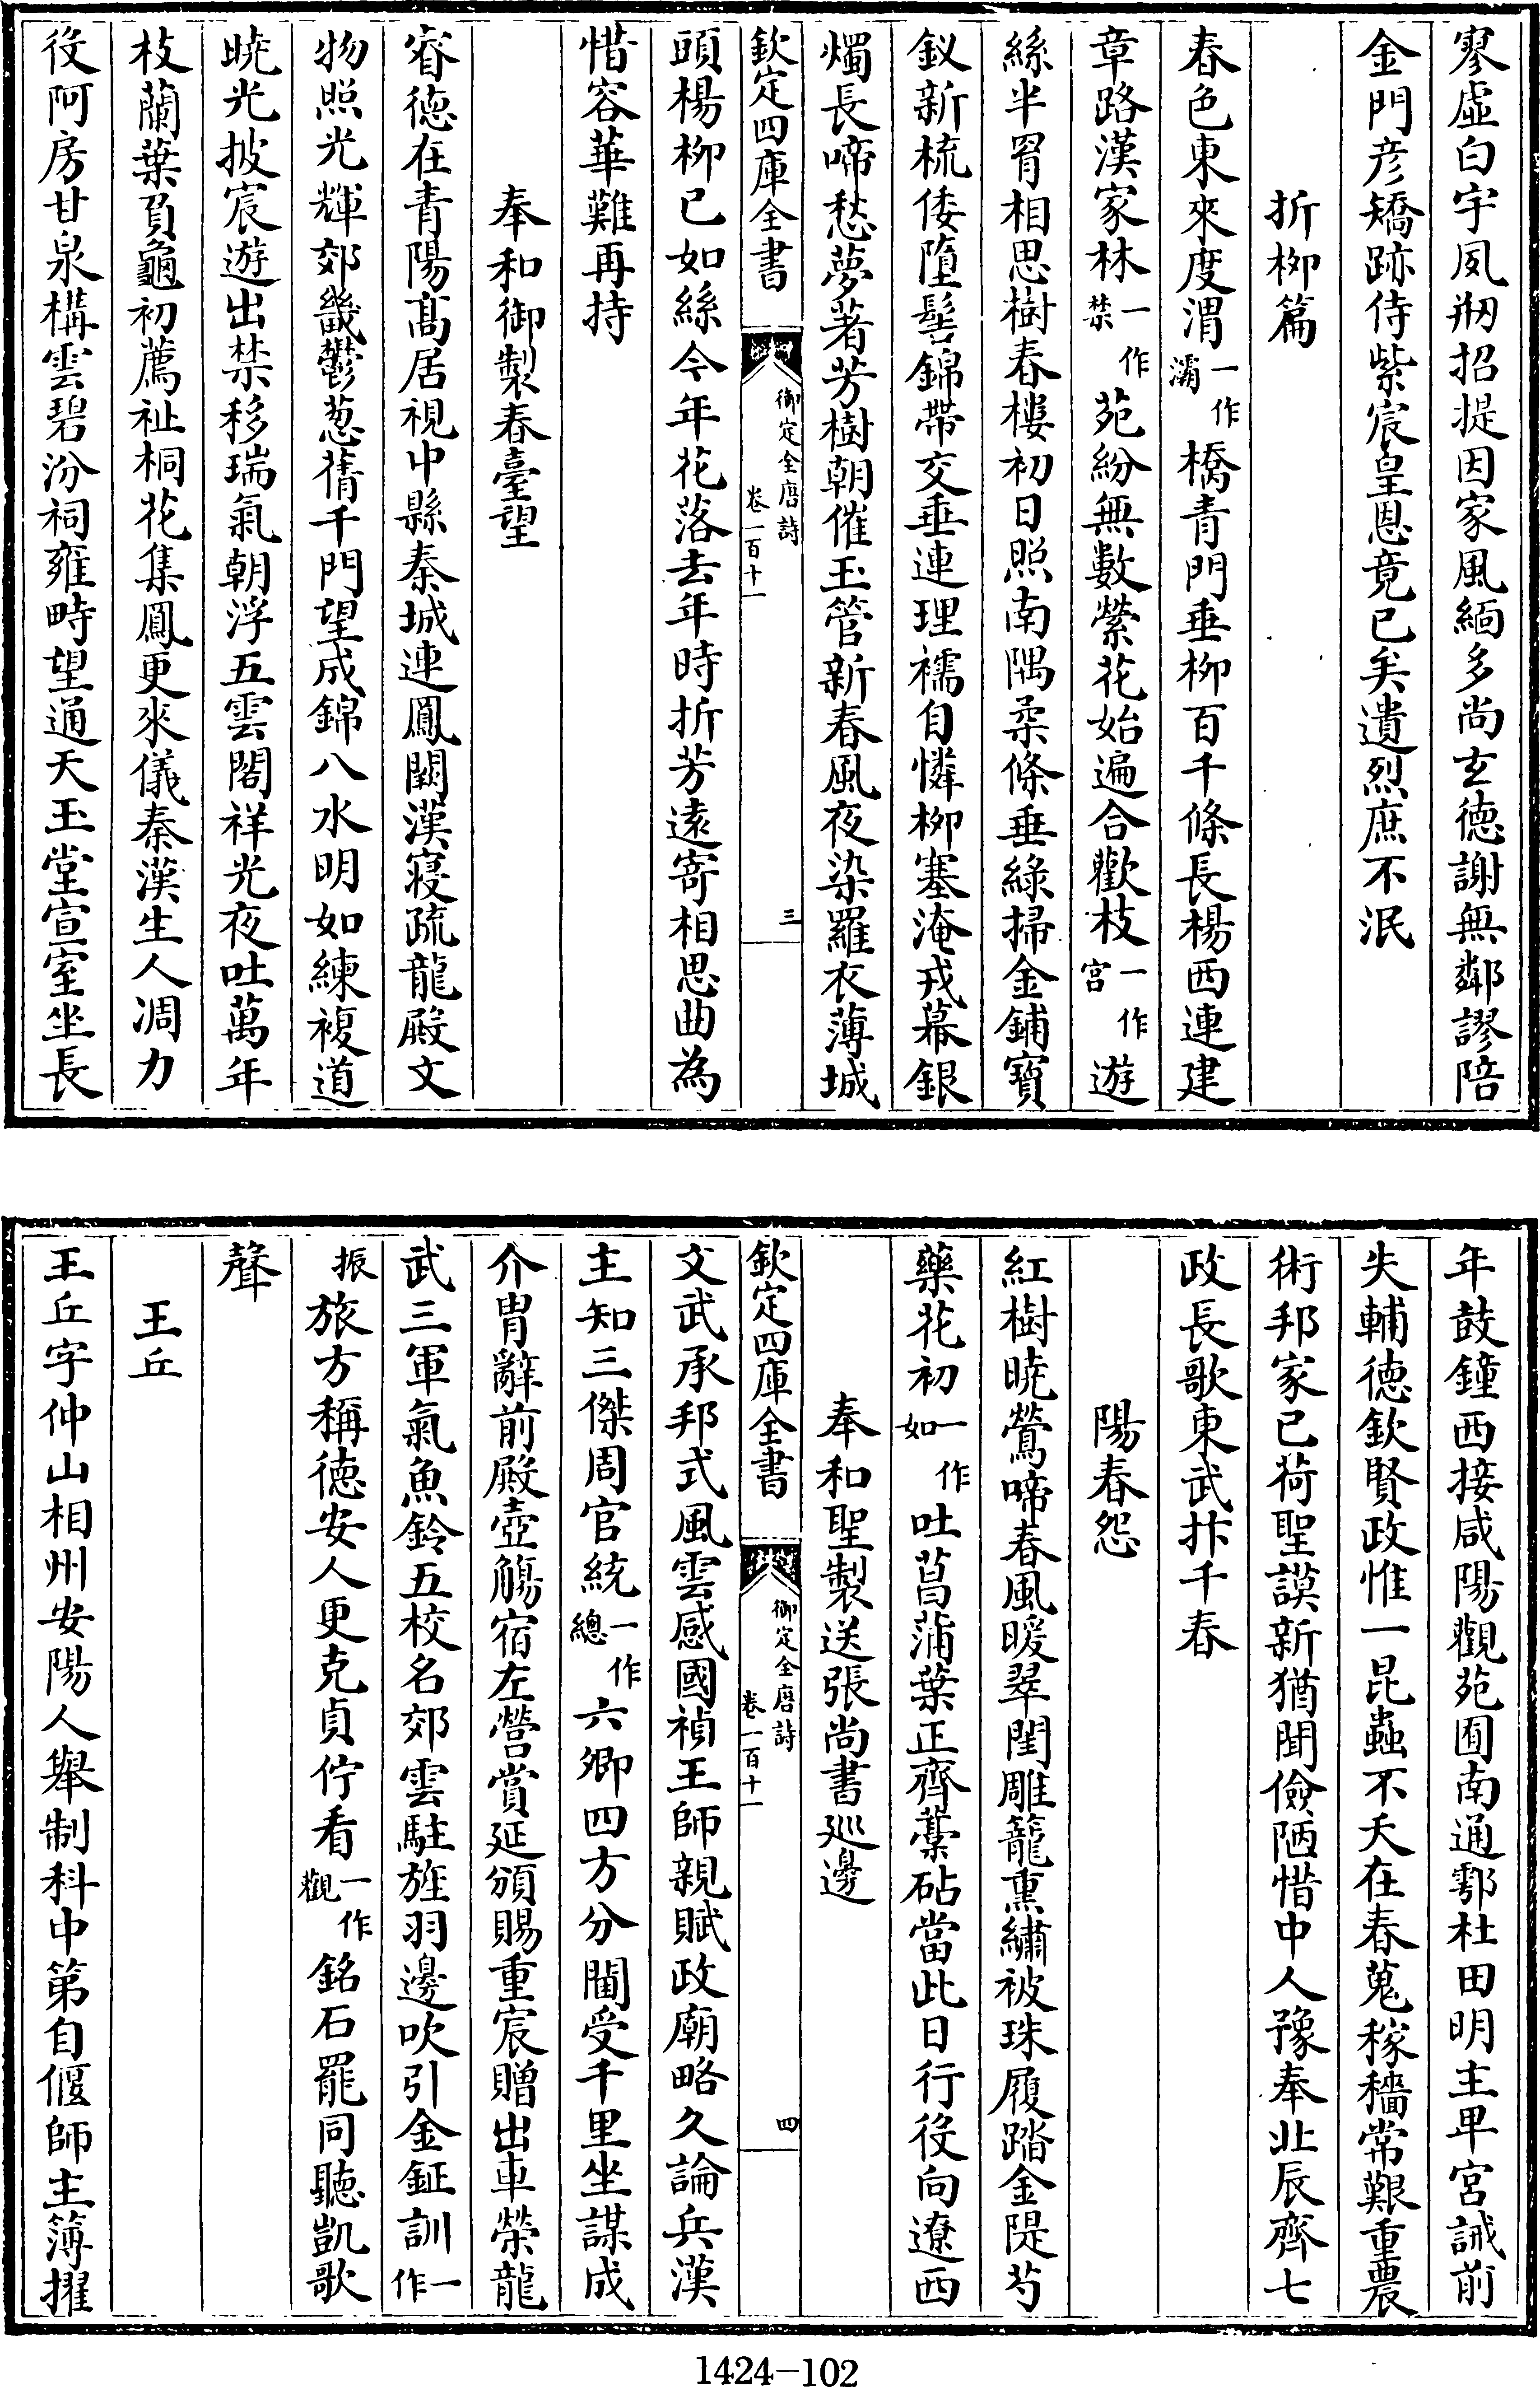 寥虛白宇夙搦招提因家風緬多尚玄德謝無鄰謬陪
金門彥矯跡侍紫宸皇恩竟已矣遺烈庶不泯
折柳篇
春色東來度渭一作灞橋青門垂柳百千條長楊西連建
章路漢家林一作禁苑紛無數縈花始遍合歡枝一作宮遊
絲半罥相思樹春樓初日照南隅柔條垂綠掃金鋪寳
釵新梳倭墮髻錦帶交垂連理襦自憐柳塞淹戎幕銀
燭長啼愁夢著芳樹朝催玉管新春風夜染羅衣薄城
欽定四庫全書 御定全唐詩 卷一百十一 三
頭楊柳已如絲今年花落去年時折芳遠寄相思曲為
惜容華難再持
奉和御製春臺望
睿德在青陽髙居視中縣秦城連鳳闕漢寢疏龍殿文
物照光輝郊畿鬱葱蒨千門望成錦八水明如練複道
曉光披宸遊出禁移瑞氣朝浮五雲閣祥光夜吐萬年
枝蘭葉負龜初薦祉桐花集鳳更來儀秦漢生人凋力
役阿房甘泉構雲碧汾祠雍畤望通天玉堂宣室坐長
年鼓鐘西接咸陽觀苑囿南通鄠杜田明主卑宮誡前
失輔德欽賢政惟一昆蟲不夭在春蒐稼穡常艱重農
術邦家已荷聖謨新猶聞儉陋惜中人豫奉北辰齊七
政長歌東武抃千春
陽春怨
紅樹曉鶯啼春風暖翠閨雕籠熏繡被珠履踏金隄芍
藥花初一作如吐菖蒲葉正齊藁砧當此日行役向遼西
奉和聖製送張尚書廵邊
欽定四庫全書 御定全唐詩 卷一百十一 四
文武承邦式風雲感國禎王師親賦政廟略久論兵漢
主知三傑周官統一作總六卿四方分閫受千里坐謀成
介冑辭前殿壺觴宿左營賞延頒賜重宸贈出車榮龍
武三軍氣魚鈴五校名郊雲駐旌羽邊吹引金鉦訓一作
振旅方稱德安人更克貞佇看一作觀銘石罷同聽凱歌
聲
王丘
王丘字仲山相州安陽人舉制科中第自偃師主簿擢
1424-102